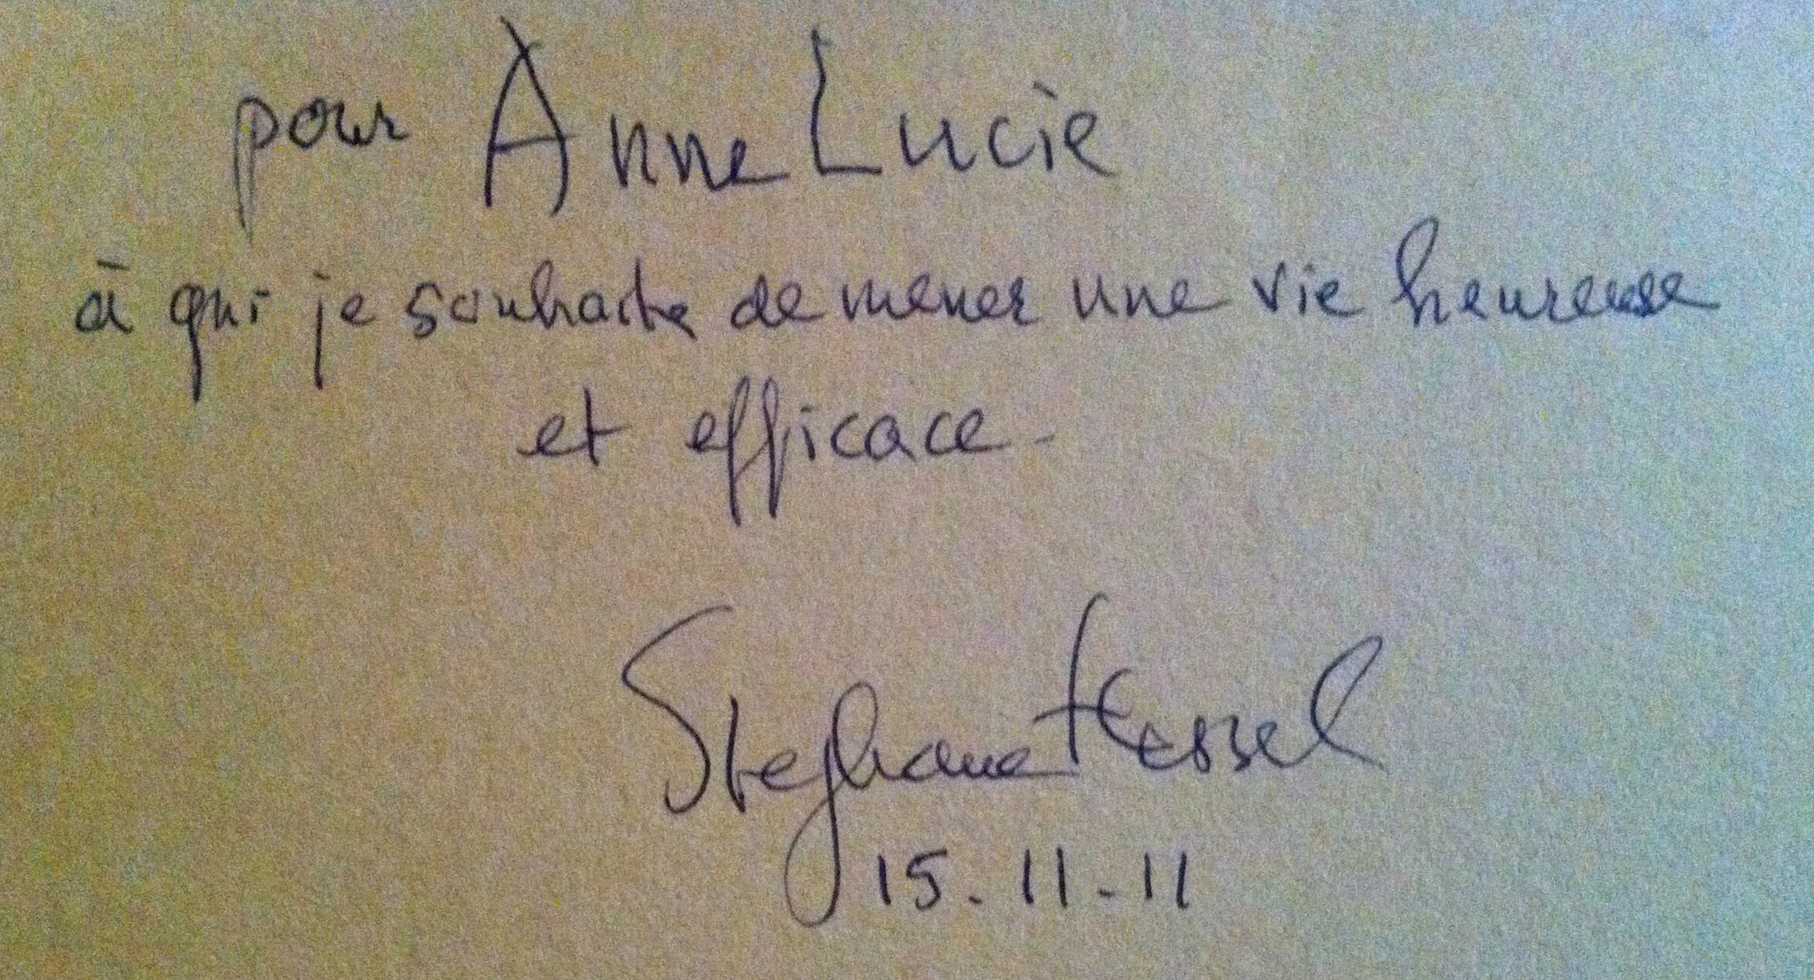 pour Anne Lucie
à qui je souhaite de mener une vie heureuse
et efficace -
Stephane Hessel
15.11-11